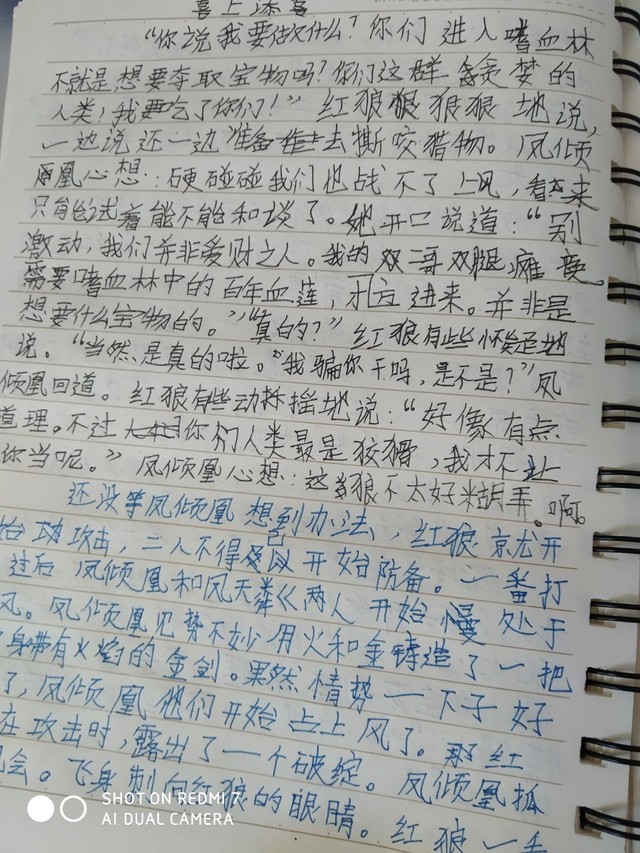 喜上添喜
“你说我要做什么？你们进入嗜血林
不就是想要夺取宝物吗？你们这群贪婪的
人类！我要吃了你们！”红狼狠狠地说，
一边说还一边准备去撕咬猎物。凤倾
凰心想：硬碰碰我们也战不了上风，看来
只能试着能不能和谈了。她开口说道：“别
激动，我们并非爱财之人。我的双哥双腿瘫痪
需要嗜血林中的百年血莲，才进来。并非是
想要什么宝物的。”“真的？”红狼有些怀疑地
说。“当然是真的啦。”我骗你干吗，是不是？”凤
倾凰回道。红狼有些动摇地说：“好像有点
道理。不过你们人类最是狡猾，我才不上
你当呢。”凤倾凰心想：这狼不太好糊弄。啊
还没等凤倾凰想到办法，红狼就开
始攻击，二人不得已以开始防备。一番打
过后凤倾凰和凤天粼两人开始慢处于
风。凤倾凰见势不妙用火和金铸造了一把
身带有火焰的金剑。果然情势一下子好
了，凤倾凰他们开始占上风了。那红
在攻击时，露出了一个破绽。凤倾凰抓
机会。飞身刺向红狼的眼睛。红狼一
SHOT ON REDMI 7
AI DUAL CAMERA